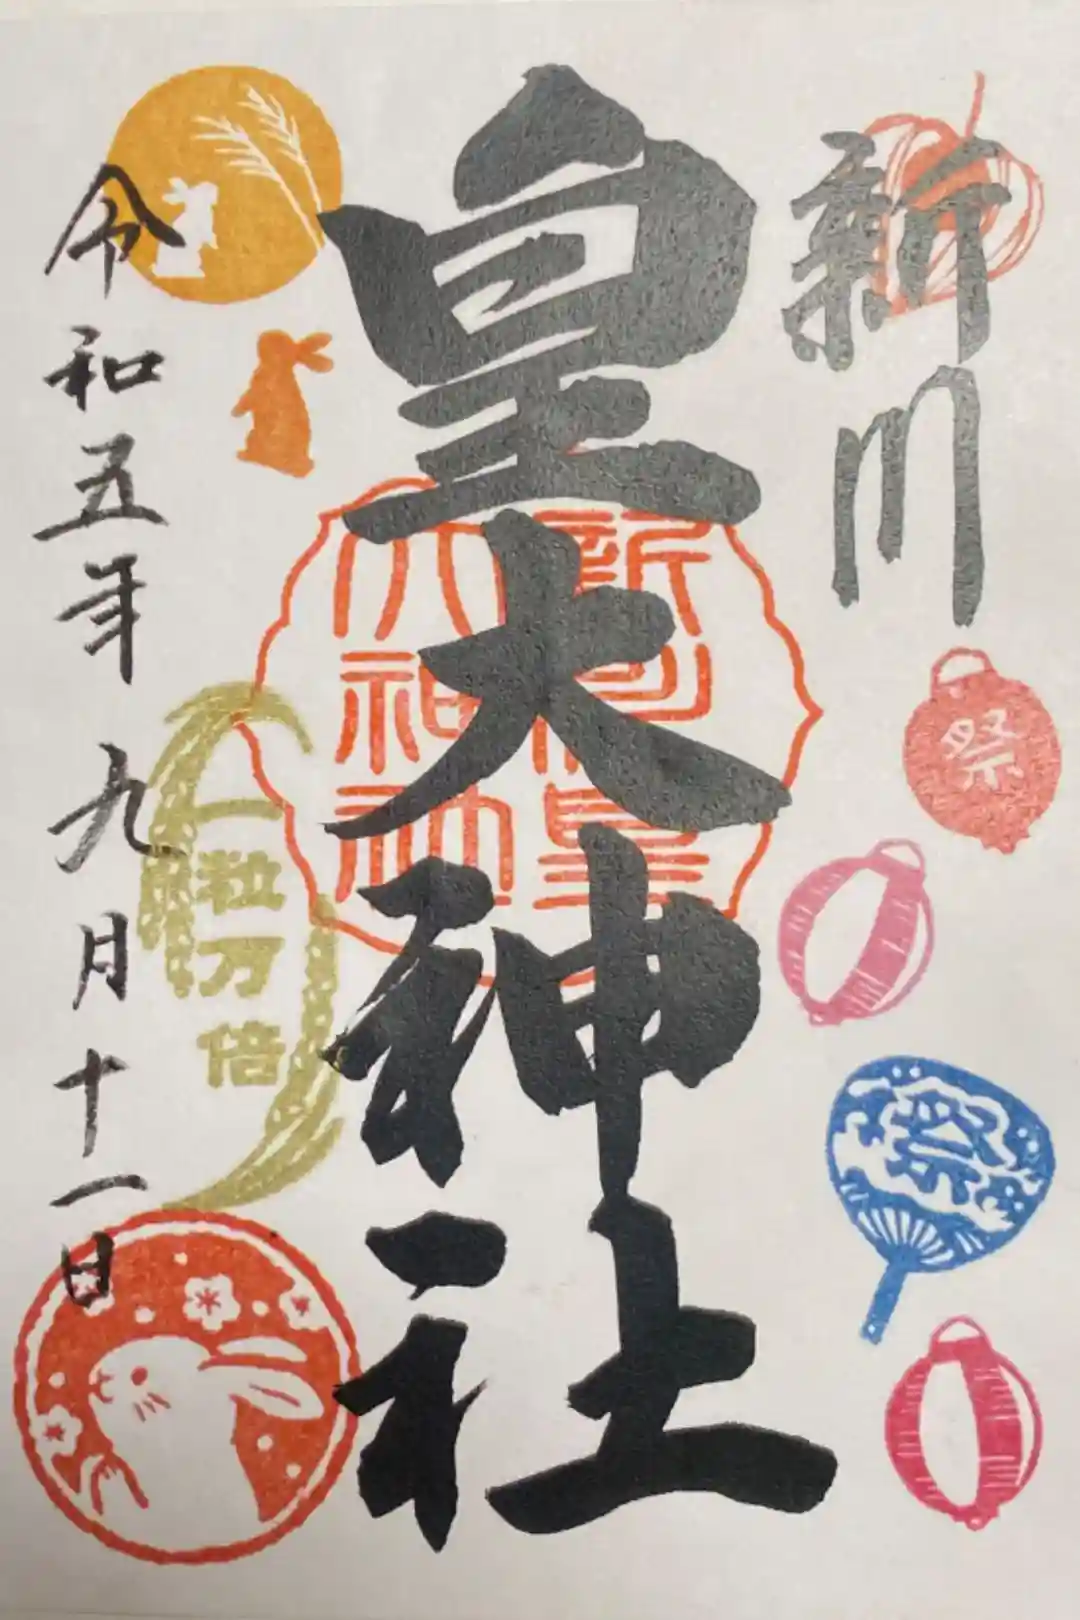 新川
皇大神社
新川皇
大神社
祭
祭
一粒万倍
令和五年九月十一日